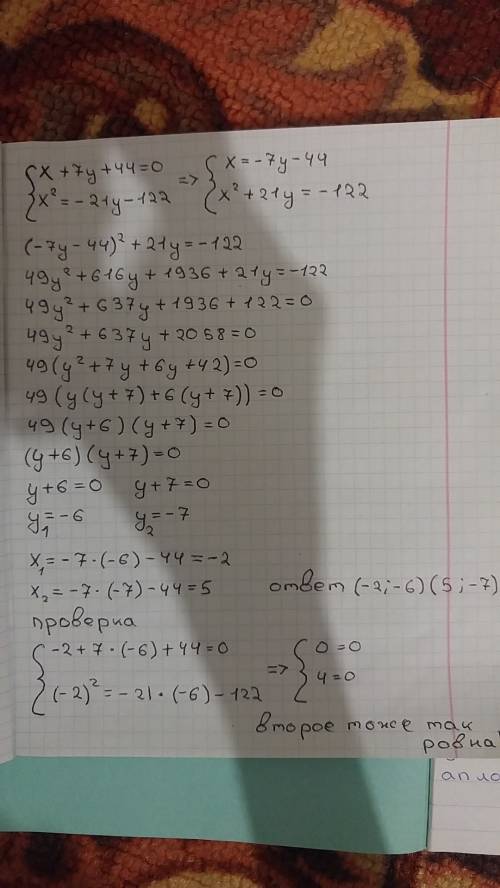 { x + 7y + 44 = 0 => { x = -7y - 44
{ x² = -21y - 122 { x² + 21y = -122
(-7y - 44)² + 21y = -122
49y² + 616y + 1936 + 21y = -122
49y² + 637y + 1936 + 122 = 0
49y² + 637y + 2058 = 0
49(y² + 7y + 6y + 42) = 0
49(y(y + 7) + 6(y + 7)) = 0
49(y + 6)(y + 7) = 0
(y + 6)(y + 7) = 0
y + 6 = 0 y + 7 = 0
y₁ = -6 y₂ = -7
x₁ = -7·(-6) - 44 = -2
x₂ = -7·(-7) - 44 = 5 ответ (-2; -6) (5; -7)
проверка
{ -2 + 7·(-6) + 44 = 0 => { 0 = 0
{ (-2)² = -21·(-6) - 122 { 4 = 0
второе тоже так
ровна